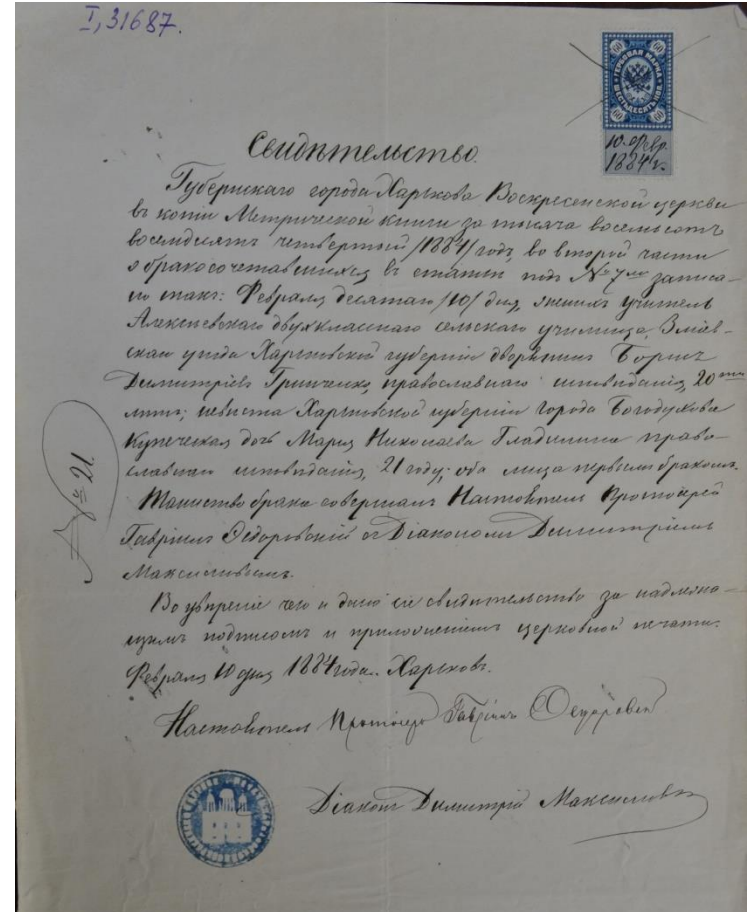 I, 31687.
60 60
ГЕРБОВАЯ МАРКА
ШЕСТЬДЕСЯТЪ КОП.
60 60
10. Февр.
1884 г.
Свидѣтельство.
Губернскаго города Харькова Воскресенской церкви
въ копіи Метрической книги за тысяча восемьсотъ
восемдесятъ четвертый /1884/ годъ, во второй части
о бракосочетавшихся въ статьи подъ № 7мъ записа-
но такъ: Февраля десятаго /10/ дня, женихъ учитель
Алексѣевскаго двухкласснаго сельскаго училища, Зміев-
скаго уѣзда Харьковской губерніи дворянинъ Борисъ
Димитріевъ Гринченко, православнаго исповѣданія, 20ти
лѣтъ; невѣста Харьковской губерніи города Богодухова
Купеческая дочь Марія Николаева Гладилина право-
славнаго исповѣданія, 21 году; оба лица первымъ бракомъ.
№ 21.
Таинство брака совершалъ Настоятель Протоіерей
Гавріилъ Ѳедоровскій съ Діакономъ Димитріемъ
Во увѣреніе чего и дано сіе свидѣтельство за надлежа-
щимъ подписомъ и приложеніемъ церковной печати.
Февраля 10 дня 1884 года. Харьковъ.
Настоятель Протоіерей Гавріилъ Ѳедоровскій
Діаконъ Димитрій